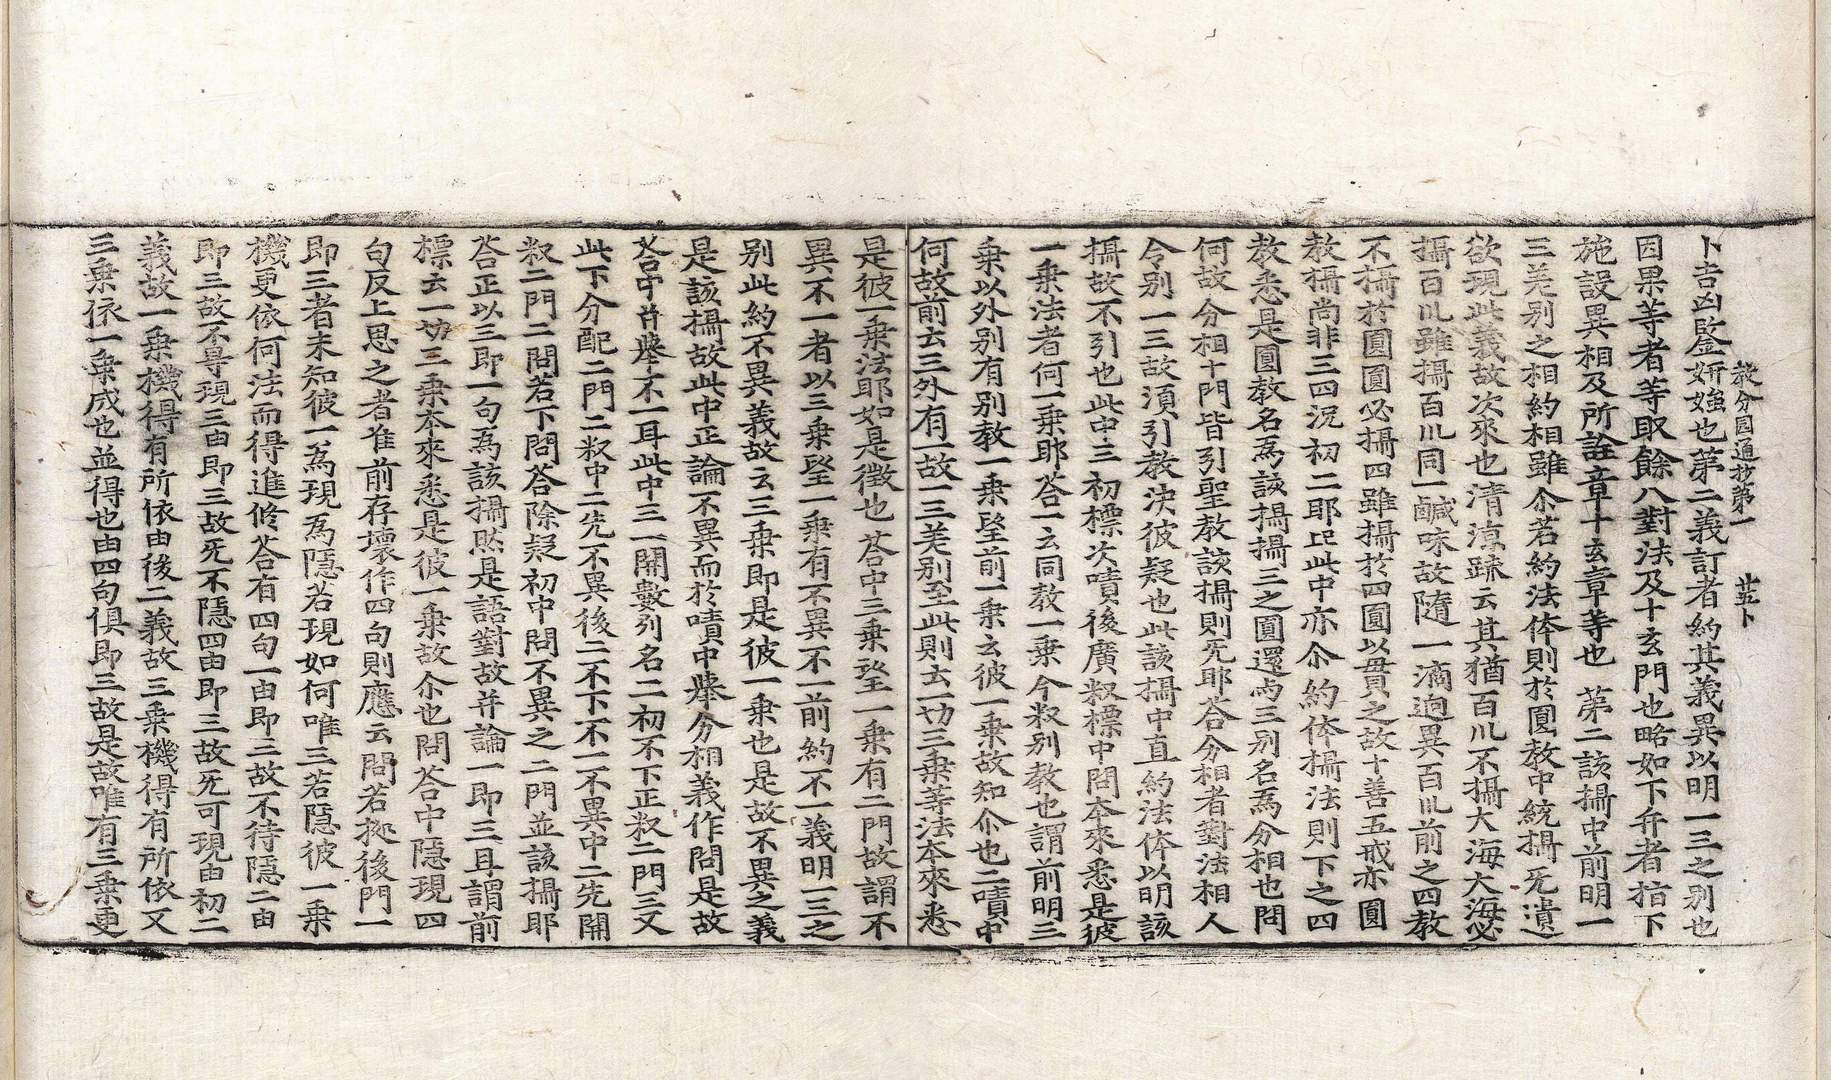 教分圓通抄第一 廿五卜
卜吉凶鑒妍媸也第二義訂者約其義異以明一三之別也
因果等者等取餘八對法及十玄門也略如下弁者指下
施設異相及所詮章十玄章等也 第二該攝中前明一
三差別之相約相雖尒若約法体則於圓教中統攝旡遺
欲現此義故次來也清凉䟽云其猶百川不攝大海大海必
攝百川雖攝百川同一鹹味故隨一滴逈異百川前之四教
不攝於圓圓必攝四雖攝於四圓以貫之故十善五戒亦圓
教攝尚非三四況初二耶㠯此中亦尒約体攝法則下之四
教悉是圓教名爲該攝攝三之圓還与三別名爲分相也問
何故分相十門皆引聖教該攝則旡耶荅分相者對法相人
令別一三故湏引教决彼疑也此該攝中直約法体以明該
攝故不引也此中三初標次嘖後廣釈標中問本來悉是彼
一乗法者何一乗耶荅一云同教一乗今釈別教也謂前明三
乗以外別有別教一乗望前一乗云彼一乗故知尒也二嘖中
何故前云三外有一故一三差別至此則云一切三乗䓁法本來悉
是彼一乗法耶如是徵也荅中三乗望一乗有二門故謂不
異不一者以三乗望一乗有不異不一前約不一義明一三之
別此約不異義故云三乗即是彼一乗也是故不異之義
是該攝故此中正論不異而於嘖中擧分相義作問是故
荅中并擧不一耳此中三一開數列名二初不下正釈二門三又
此下分配二門二釈中二先不異後二不下不一不異中二先開
釈二門二問若下問荅除疑初中問不異之二門並該攝耶
荅正以三即一句爲該攝然是語對故并論一即三耳謂前
標云一切三乗本來悉是彼一乗故尒也問荅中隱現四
句反上思之者准前存壞作四句則應云問若拠後門一
即三者未知彼一爲現爲隱若現如何唯三若隱彼一乗
機更依何法而得進修荅有四句一由即三故不待隱二由
即三故不㝵現三由即三故旡不隱四由即三故旡可現由初二
義故一乗機得有所依由後二義故三乗機得有所依又
三乗依一乗成也並得也由四句俱即三故是故唯有三乗更